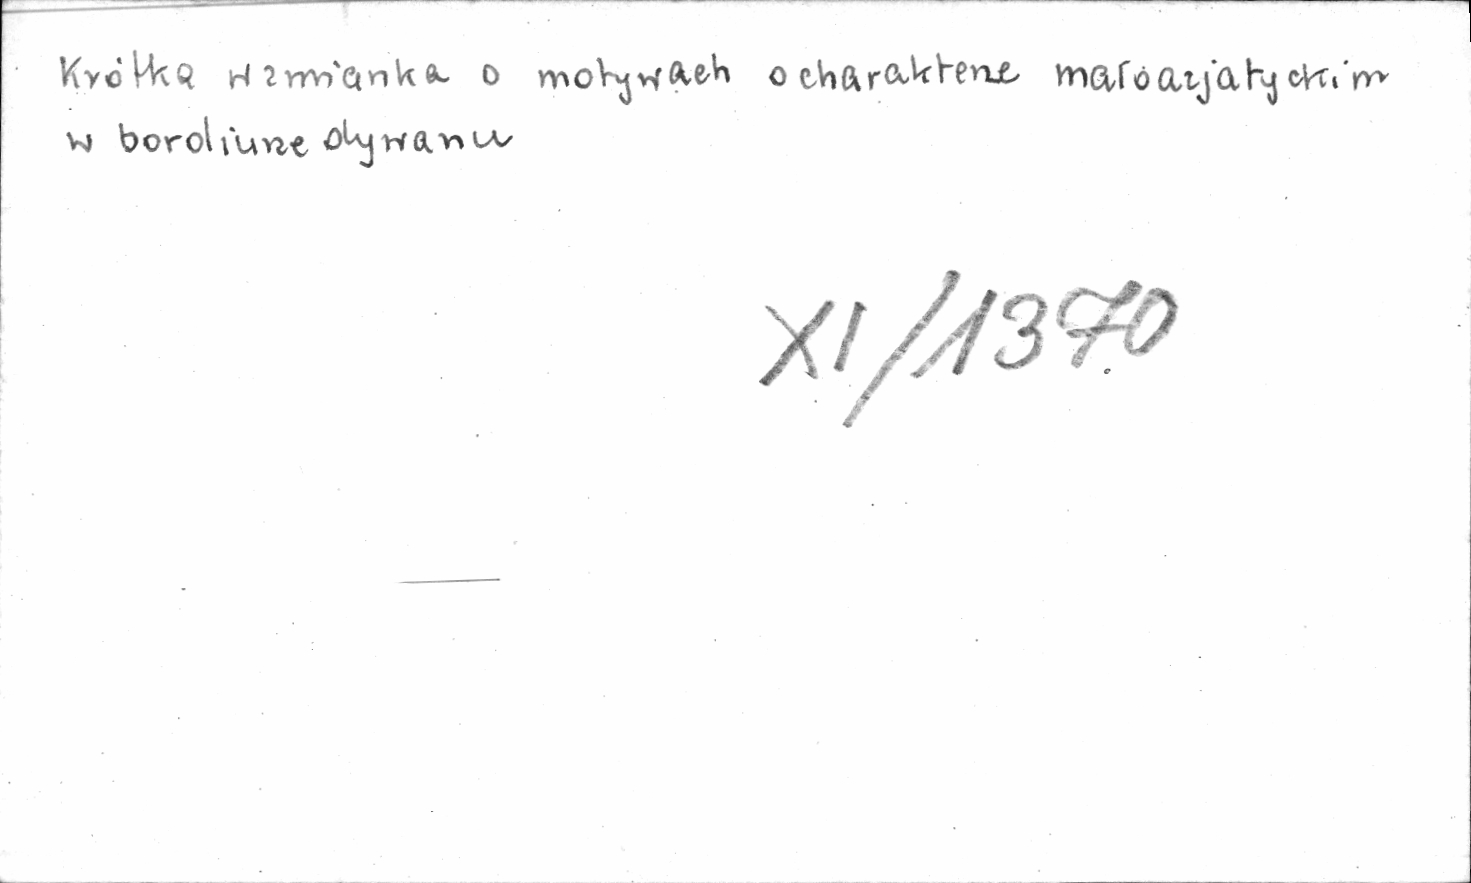 Krótka wzmianka o motywach o charakterze małoazjatyckim
w bordiurze dywanu
XI/1370